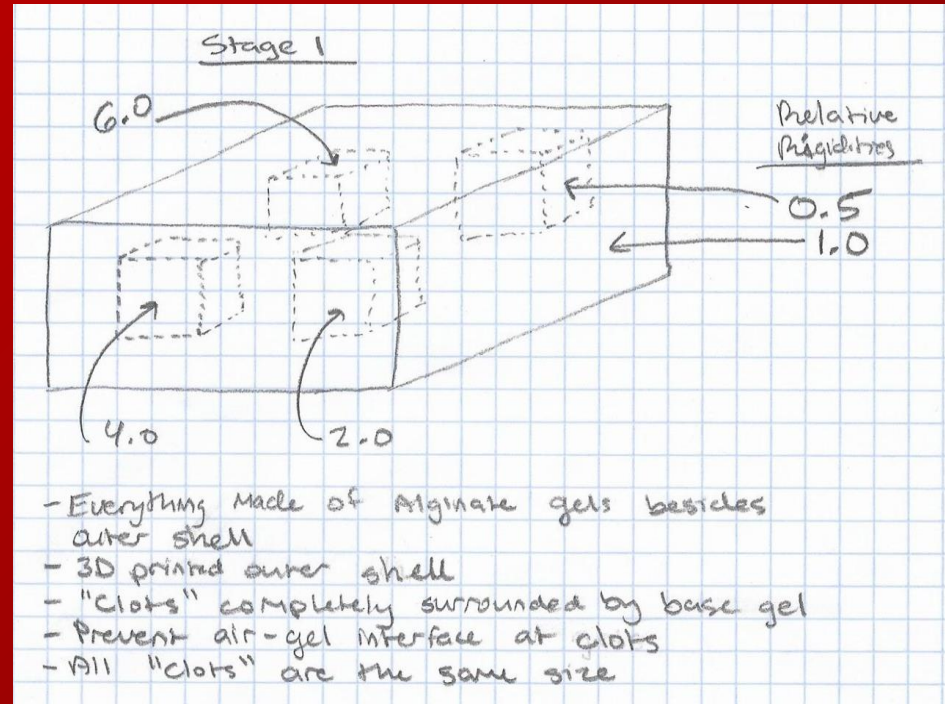 Stage 1
6.0
Relative
Rigidities
0.5
1.0
4.0
2.0
- Everything Made of Alginate gels besides
outer shell
- 3D printed outer shell
- "Clots" completely surrounded by base gel
- Prevent air-gel interface at clots
- All "Clots" are the same size